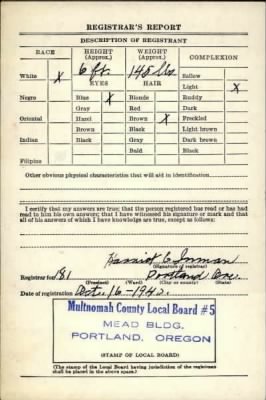 REGISTRAR'S REPORT
DESCRIPTION OF REGISTRANT
RACE HEIGHT (Approx.) WEIGHT (Approx.) COMPLEXION
6 ft. 145 lbs. Sallow
White X EYES HAIR Light X
Negro Blue X Blonde Ruddy
Gray Red Dark
Oriental Hazel Brown X Freckled
Brown Black Light brown
Indian Black Gray Dark brown
Bald Black
Filipino
Other obvious physical characteristics that will aid in identification
I certify that my answers are true; that the person registered has read or has had
read to him his own answers; that I have witnessed his signature or mark and that
all of his answers of which I have knowledge are true, except as follows:
Harriet C Inman
(Signature of registrar)
Registrar for 181 Portland Ore.
(Precinct) (Ward) (City or county) (State)
Date of registration Oct. 16-1940
Multnomah County Local Board #5
MEAD BLDG.
PORTLAND, OREGON
(STAMP OF LOCAL BOARD)
(The stamp of the Local Board having jurisdiction of the registrant
shall be placed in the above space.)